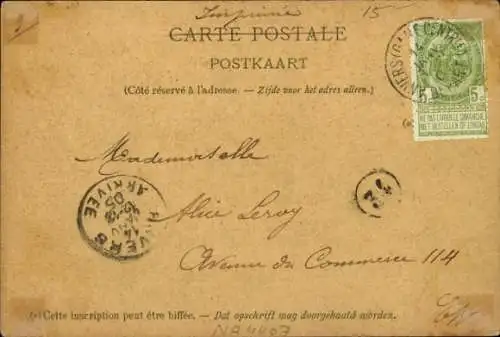 1
Imprimé
15
CARTE POSTALE
POSTKAART
(Côté réservé à l'adresse. — Zijde voor het adres alleen.)
ANVERS (GARE CENTRALE)
5 5
NE PAS LIVRER LE DIMANCHE
NIET BESTELLEN OP ZONDAG
Mademoiselle
34
Alice Leroy
ANVERS
14
JANV
05
ARRIVÉE
Avenue du Commerce 114
(*) Cette inscription peut être biffée. — Dat opschrift mag doorgehaald worden.
NA4407